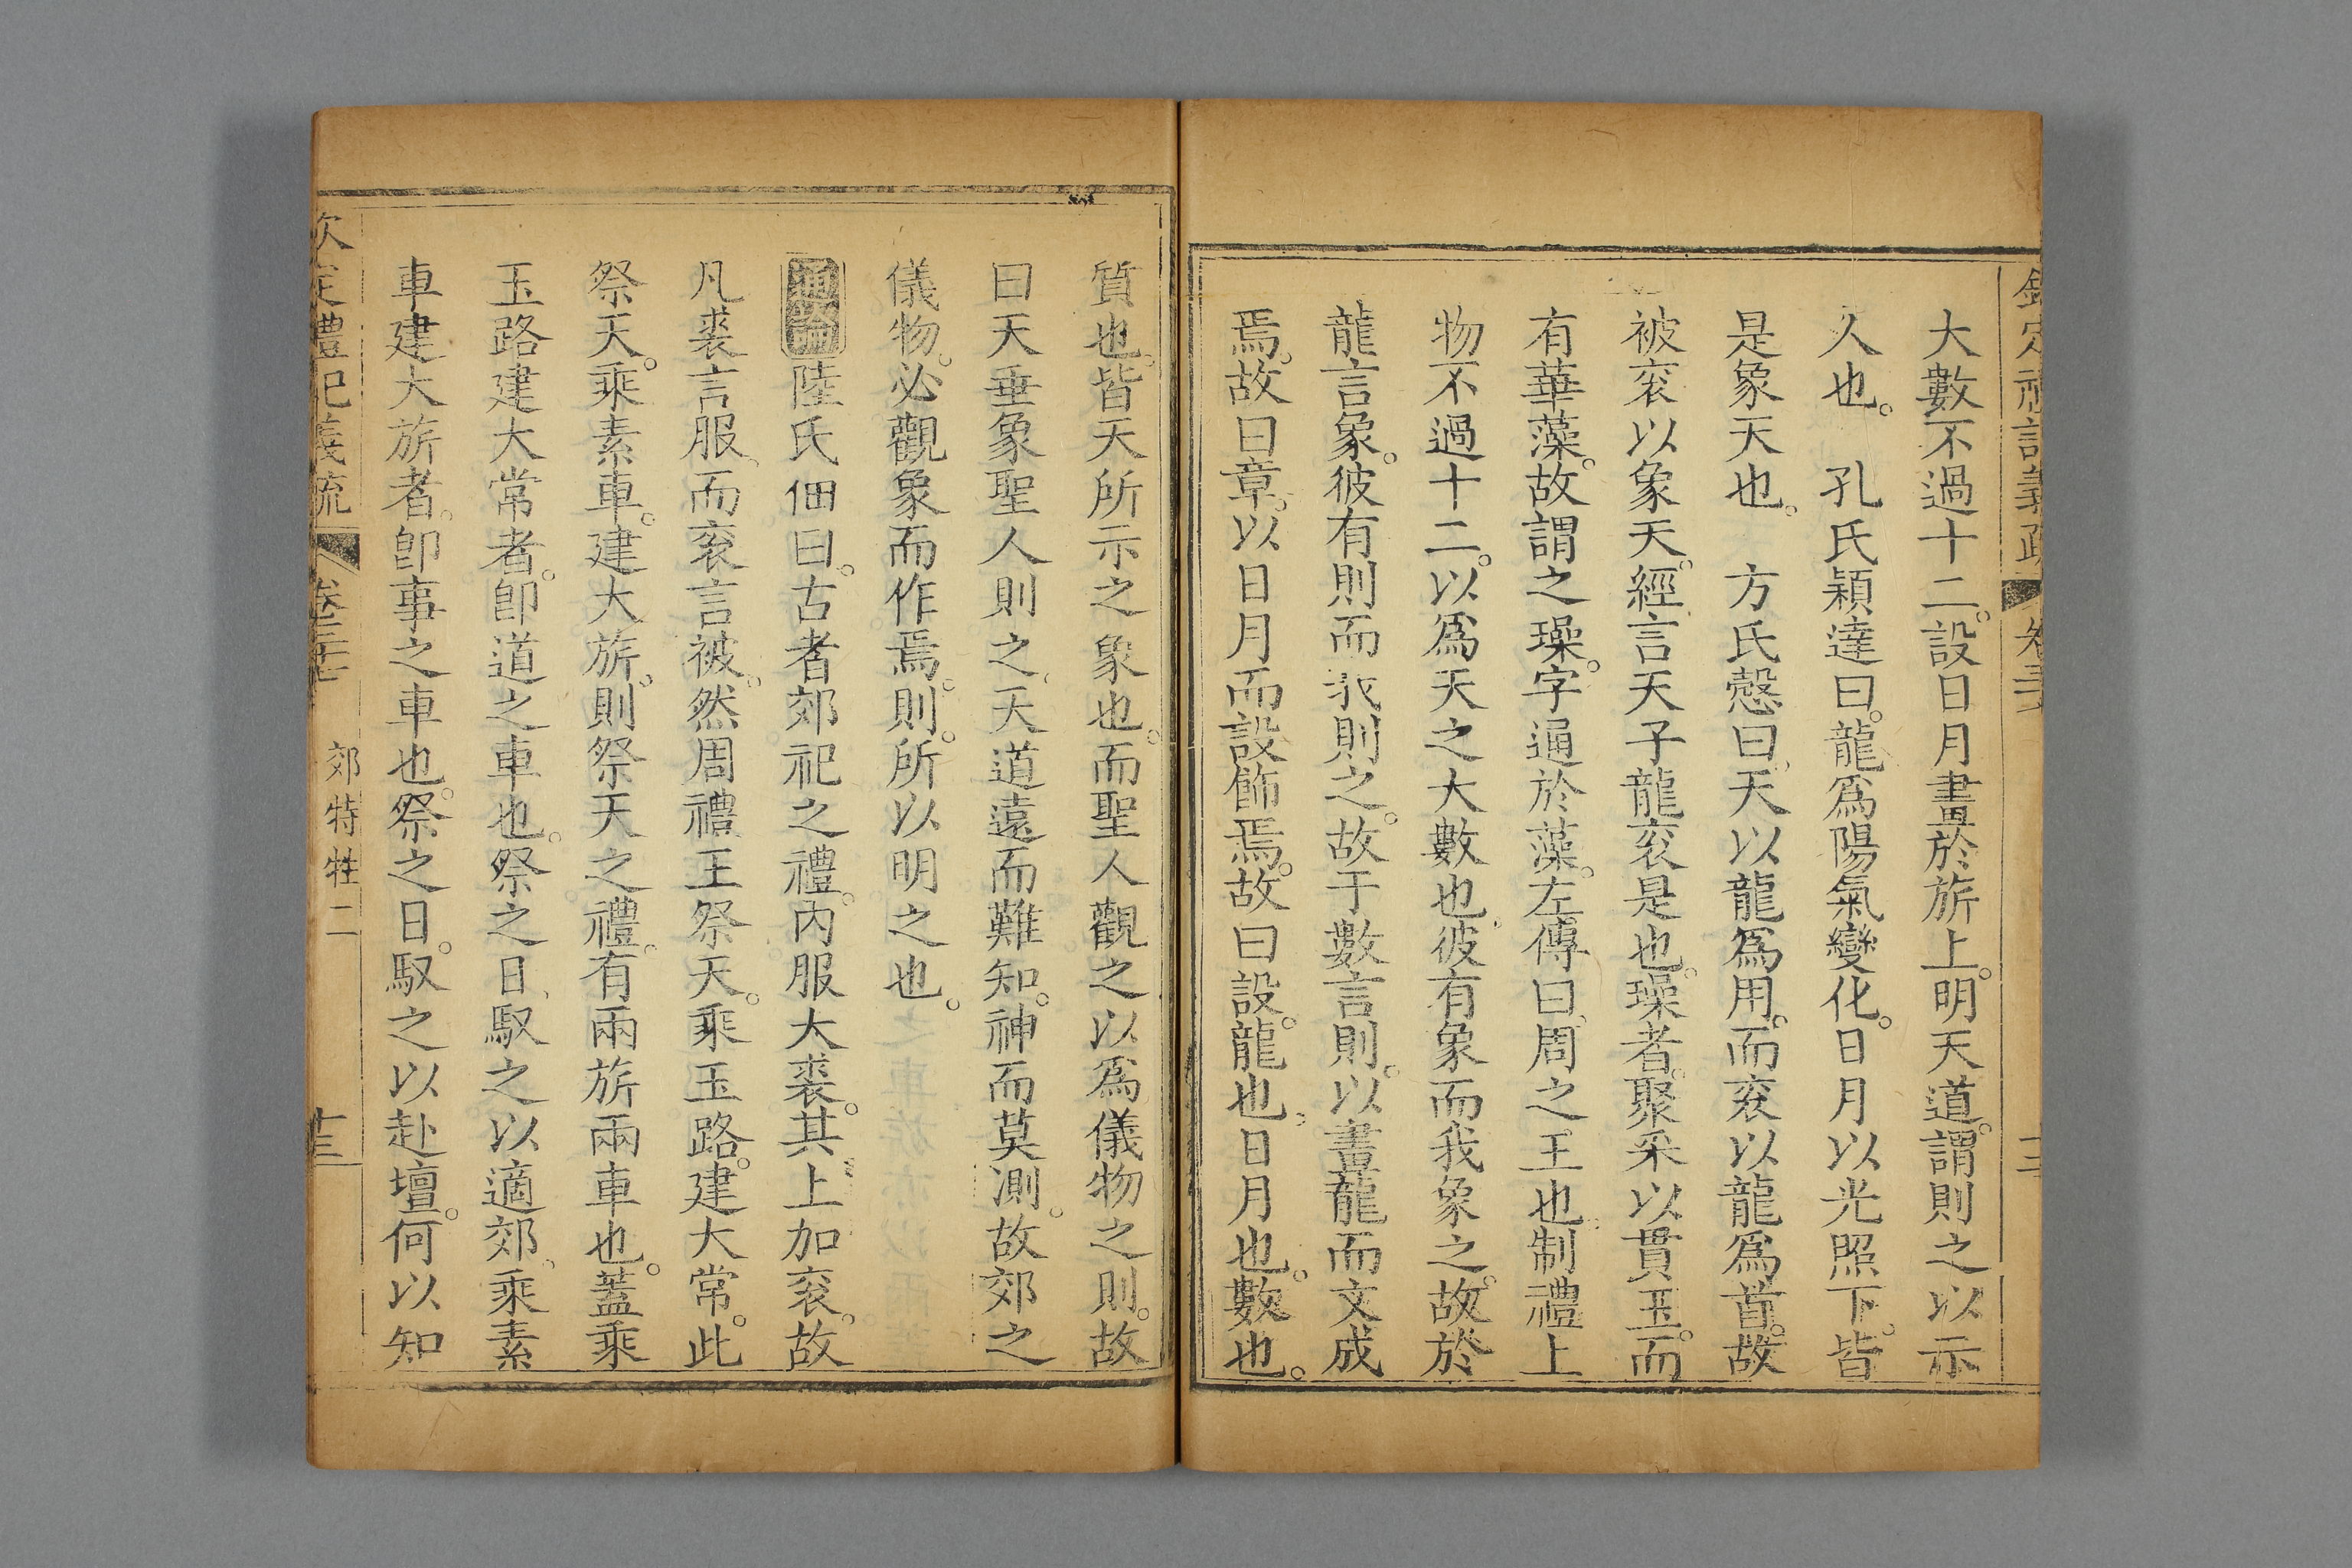 欽定禮記義疏 卷三十七
大數不過十二。設日月畫於旂上。明天道。謂則之以示
人也。 孔氏穎達曰。龍爲陽氣變化。日月以光照下。皆
是象天也。 方氏慤曰。天以龍爲用。而袞以龍爲首。故
被袞以象天。經言天子龍袞是也。璪者。聚采以貫玉。而
有華藻。故謂之璪。字通於藻。左傳曰。周之王也。制禮上
物不過十二。以爲天之大數也。彼有象而我象之。故於
龍言象。彼有則而我則之。故于數言則。以畫龍而文成
焉。故曰章。以日月而設飾焉。故曰設。龍也。日月也。數也。
質也。皆天所示之象也。而聖人觀之以爲儀物之則。故
曰天垂象聖人則之。天道遠而難知。神而莫測。故郊之
儀物。必觀象而作焉。則。所以明之也。
通論陸氏佃曰。古者郊祀之禮。內服大裘。其上加袞。故
凡裘言服。而袞言被。然周禮王祭天。乘玉路。建大常。此
祭天。乘素車。建大旂。則祭天之禮。有兩旂兩車也。蓋乘
玉路建大常者。卽道之車也。祭之日。馭之以適郊。乘素
車建大旂者。卽事之車也。祭之日。馭之以赴壇。何以知
欽定禮記義疏 卷三十七 郊特牲二 十三